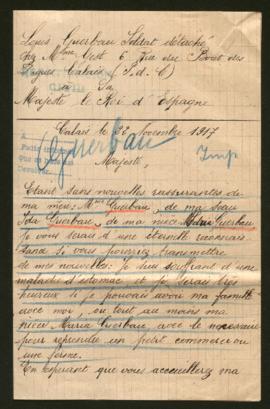 Louis Guerbau Soldat détaché
chez Mme 6, Rue du Bout des
Digues Calais (P. d. C)
à Sa
Majesté le Roi d'Espagne
Calais le Novembre 1917
Guerbau
Majesté,
Etant sans nouvelles rassurantes de
ma mère: Mme Guerbau, de ma sœur
Guerbau, de ma nièce Guerbau
je vous serais d'une éternelle reconnais
sance si vous pouviez transmettre
de mes nouvelles. Je suis souffrant d'une
maladie d'estomac et je serais très
heureux si je pouvais avoir ma famille
avec moi, ou tout au moins ma
nièce Maria Guerbau, avec le nécessaire
pour reprendre un petit commerce ou
une ferme.
En espérant que vous accueillerez ma